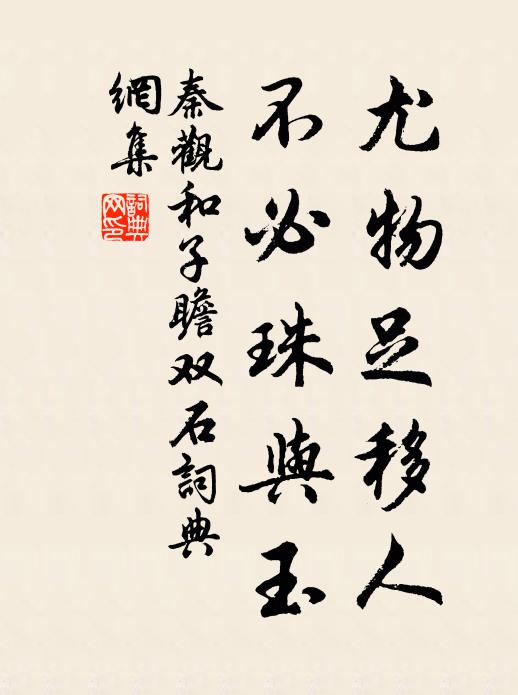 尤物足移人
不必珠與玉
秦觀和子瞻双石詞典
網集
詞典网印